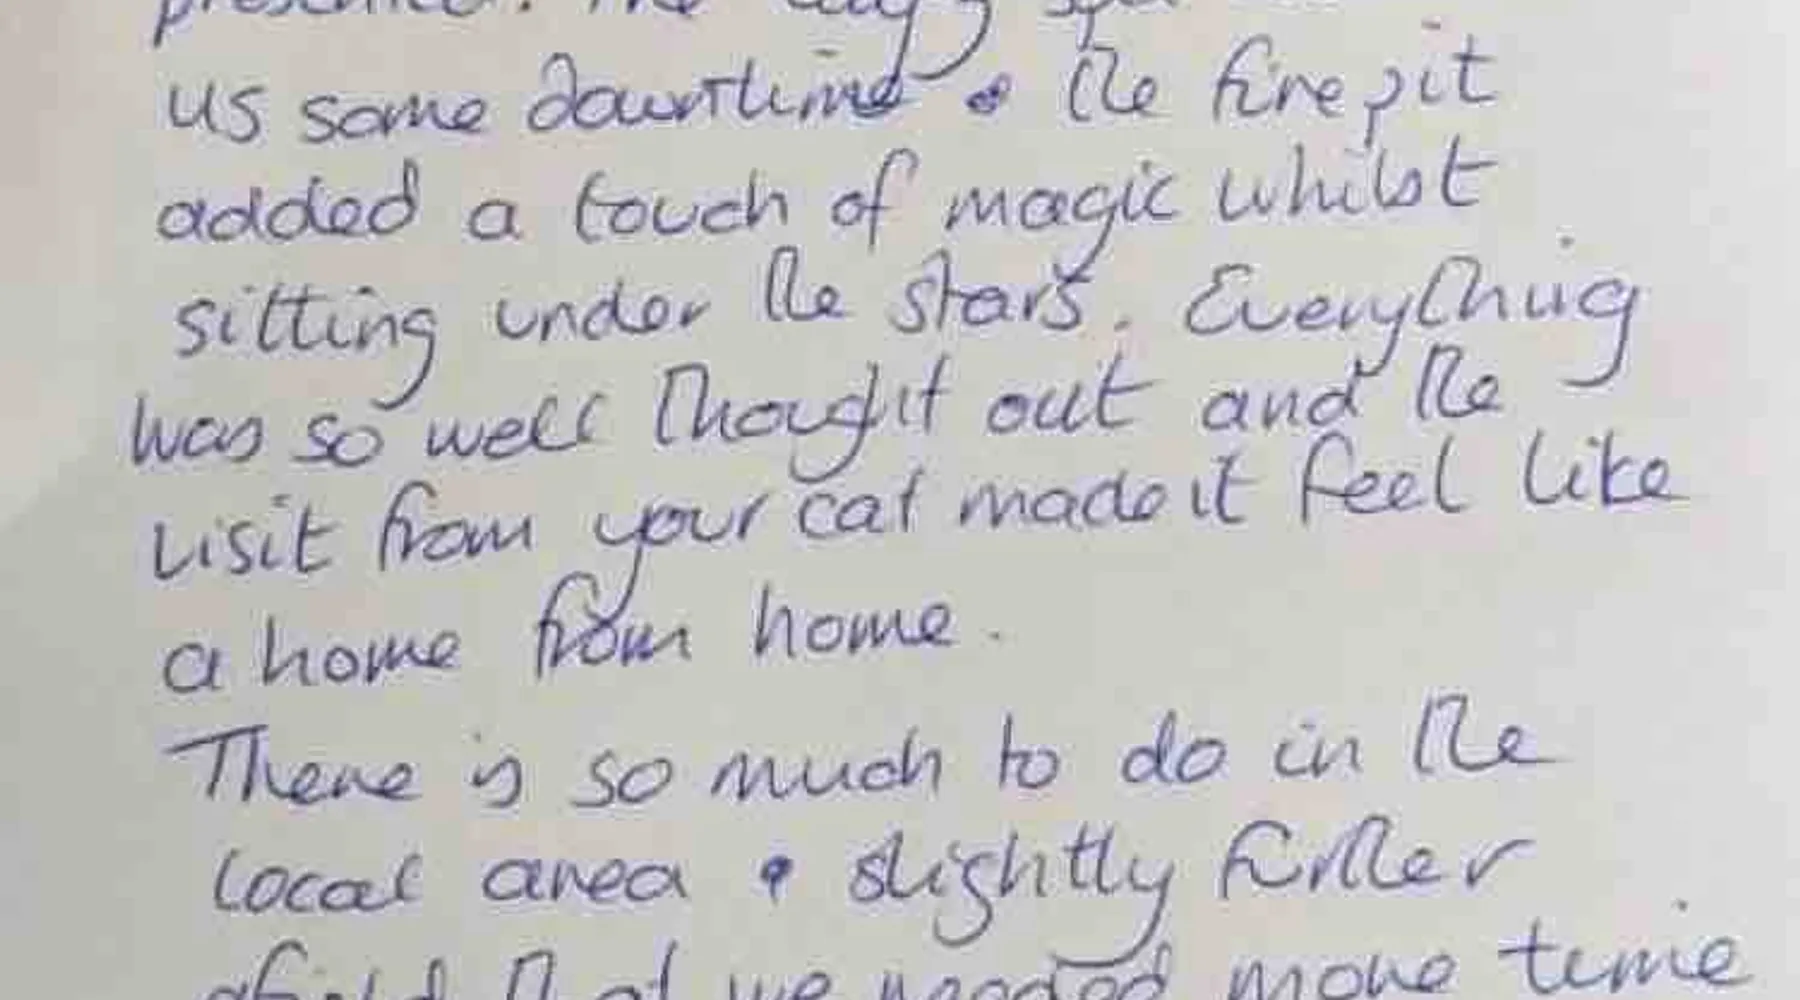 presented. The
us some downtime & the firepit
added a touch of magic whilst
sitting under the stars. Everything
was so well thought out and the
visit from your cat made it feel like
a home from home.
There is so much to do in the
local area & slightly further
afield that we needed more time